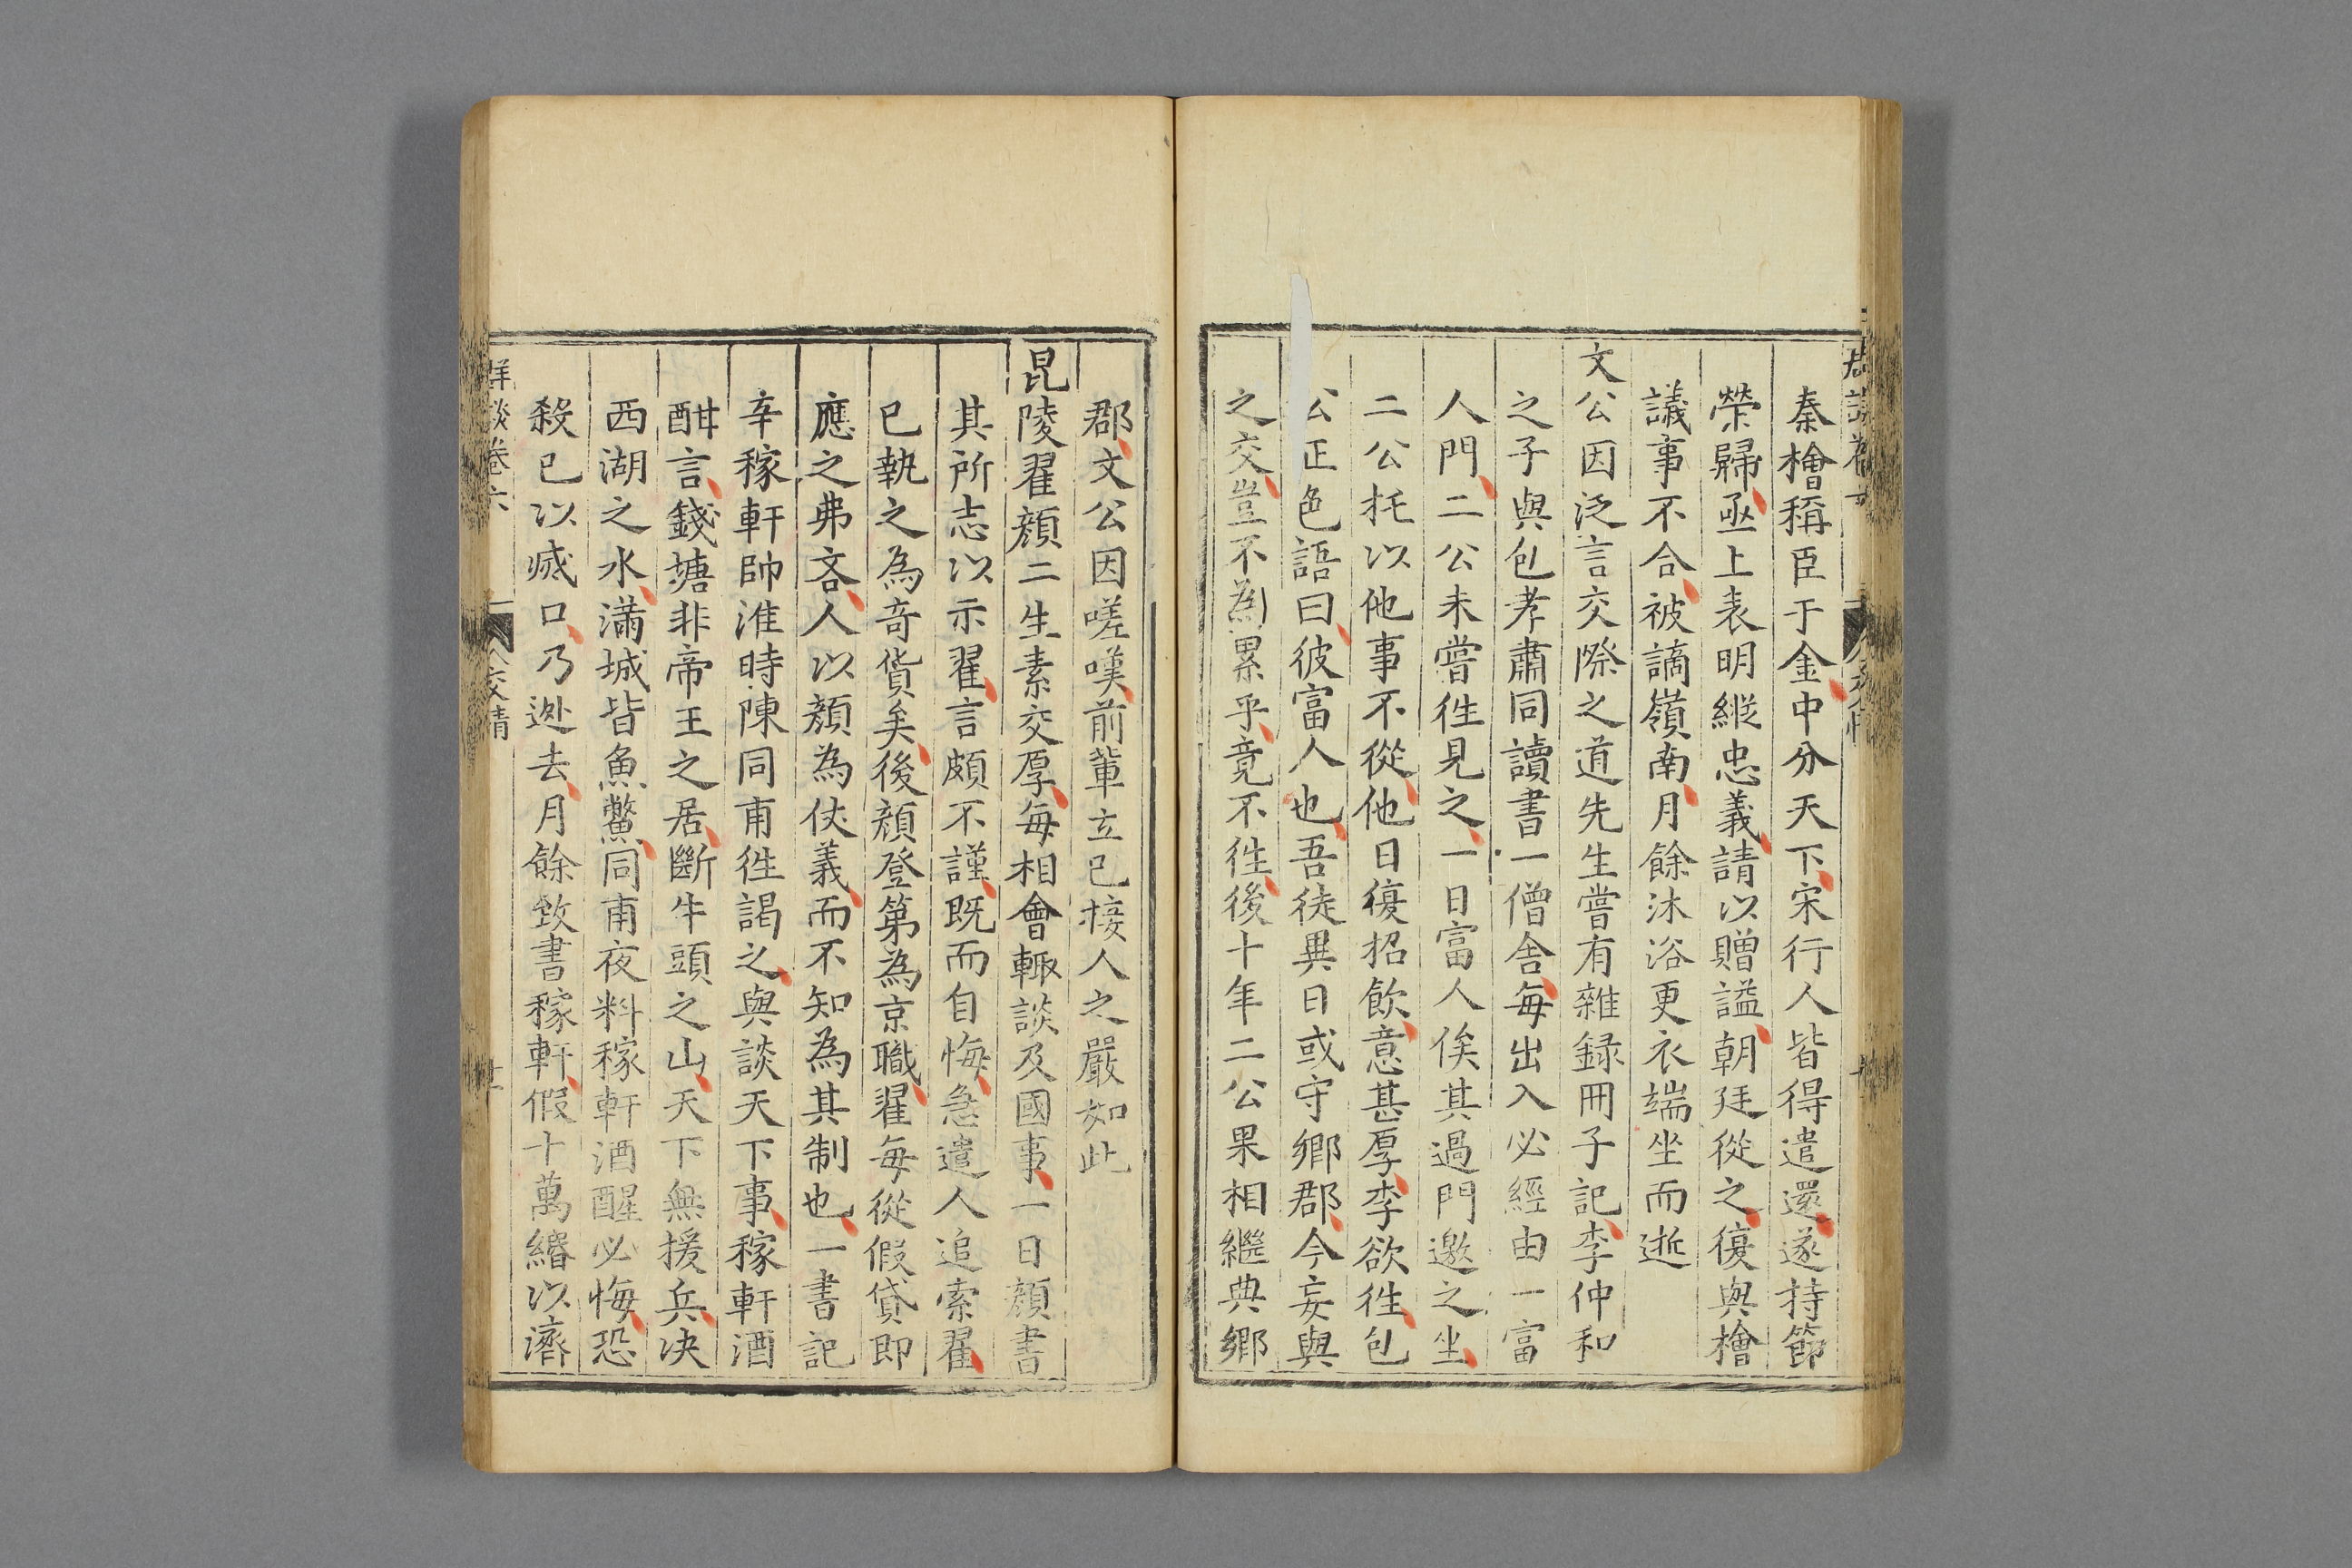 秦檜稱臣于金中分天下宋行人皆得遣還遂持節
榮歸亟上表明縱忠義請以贈謚朝廷從之復與檜
議事不合被謫嶺南月餘沐浴更衣端坐而逝
文公因泛言交際之道先生嘗有雜録冊子記李仲和
之子與包孝肅同讀書一僧舍每出入必經由一富
人門二公未嘗徃見之一日富人俟其過門邀之坐
二公托以他事不從他日復招飲意甚厚李欲徃包
公正色語曰彼富人也吾徒異日或守鄉郡今妄與
之交豈不為累乎竟不徃後十年二公果相繼典鄉
郡文公因嗟嘆前輩立已接人之嚴如此
昆陵翟顏二生素交厚每相會輙談及國事一日顏書
其所志以示翟言頗不謹既而自悔急遣人追索翟
已執之為奇貨矣後顏登第為京職翟每從假貸即
應之弗吝人以顏為仗義而不知為其制也一書記
辛稼軒帥淮時陳同甫徃謁之與談天下事稼軒酒
酣言錢塘非帝王之居斷牛頭之山天下無援兵决
西湖之水滿城皆魚鱉同甫夜料稼軒酒醒必悔恐
殺已以滅口乃迯去月餘致書稼軒假十萬緡以濟
群談卷六 交情